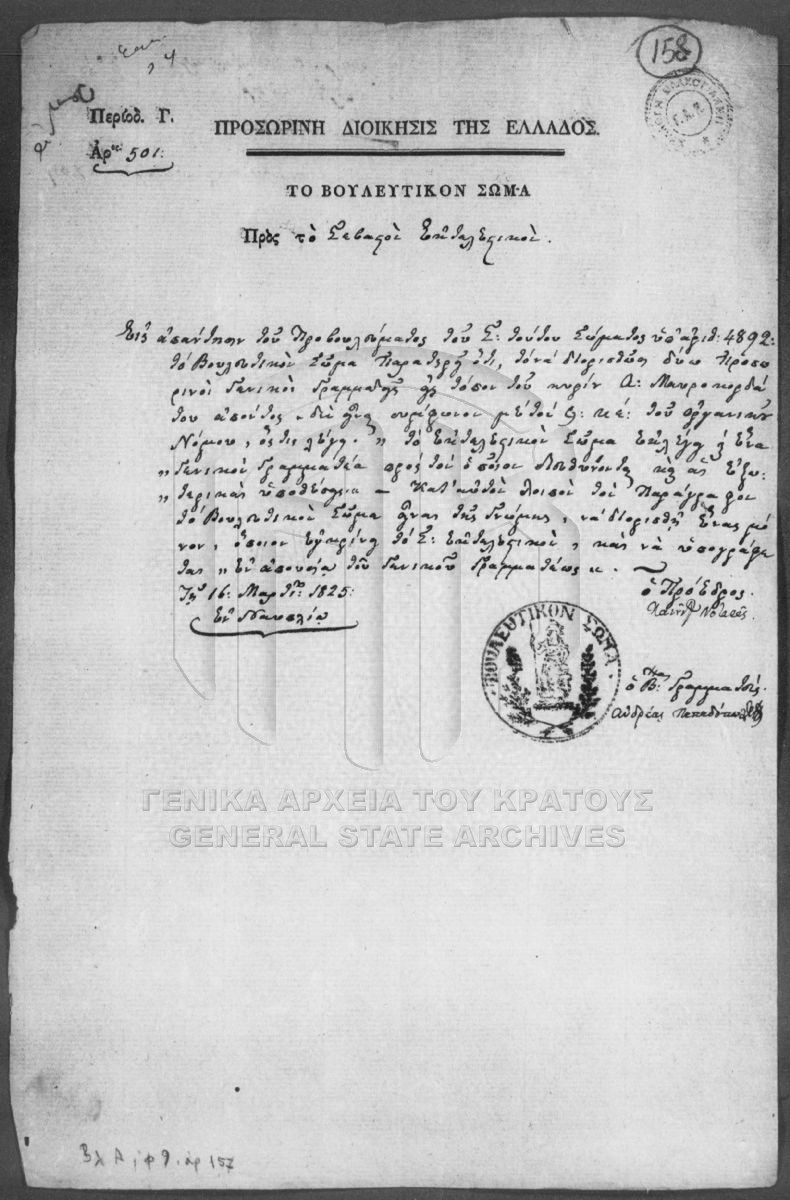 158
Περίοδ. Γ.
Ἀρ. 501:
ΠΡΟΣΩΡΙΝΗ ΔΙΟΙΚΗΣΙΣ ΤΗΣ ΕΛΛΑΔΟΣ.
ΤΟ ΒΟΥΛΕΥΤΙΚΟΝ ΣΩΜΑ
Πρὸς τὸ Σεβαστὸν Ἐκτελεστικόν.
Εἰς ἀπάντησιν τοῦ Προβουλεύματος τοῦ Σ: τούτου Σώματος ὑπ' ἀριθ: 4892:
τὸ Βουλευτικὸν Σῶμα παρατηρεῖ ὅτι, τὸ νὰ διορισθῶσι δύω προσω
ρινοὶ Γενικοὶ Γραμματεῖς εἰς τόπον τοῦ κυρίου Α: Μαυροκορδά
του ἀπόντος, δὲν εἶναι σύμφωνον μὲ τὸν §: κέ: τοῦ ὀργανικοῦ
Νόμου, ὅστις λέγει. „ τὸ Ἐκτελεστικὸν Σῶμα ἐκλέγει ἕνα
„ Γενικὸν Γραμματέα πρὸς τὸν ὁποῖον διευθύνονται καὶ αἱ ἐξω:
„ τερικαὶ ὑποθέσεις „ Κατ' αὐτὸν λοιπὸν τὸν Παράγραφον
τὸ Βουλευτικὸν Σῶμα εἶναι τῆς γνώμης, νὰ διορισθῇ ἕνας μό
νον, ὅποιον ἐγκρίνει τὸ Σ: Ἐκτελεστικόν, καὶ νὰ ὑπογράφε
ται „ ἐν ἀπουσίᾳ τοῦ Γενικοῦ Γραμματέως „.
Τῇ 16: Μαρτίου 1825:
ἐν Ναυπλίῳ
ὁ Πρόεδρος.
Πανούτζος Νοταρᾶς
ΒΟΥΛΕΥΤΙΚΟΝ ΣΩΜΑ
ὁ Β: Γραμματεύς.
Ἀνδρέας Παπαδόπουλος
ΓΕΝΙΚΑ ΑΡΧΕΙΑ ΤΟΥ ΚΡΑΤΟΥΣ
GENERAL STATE ARCHIVES
Βλ Α, φ 9, αρ 157